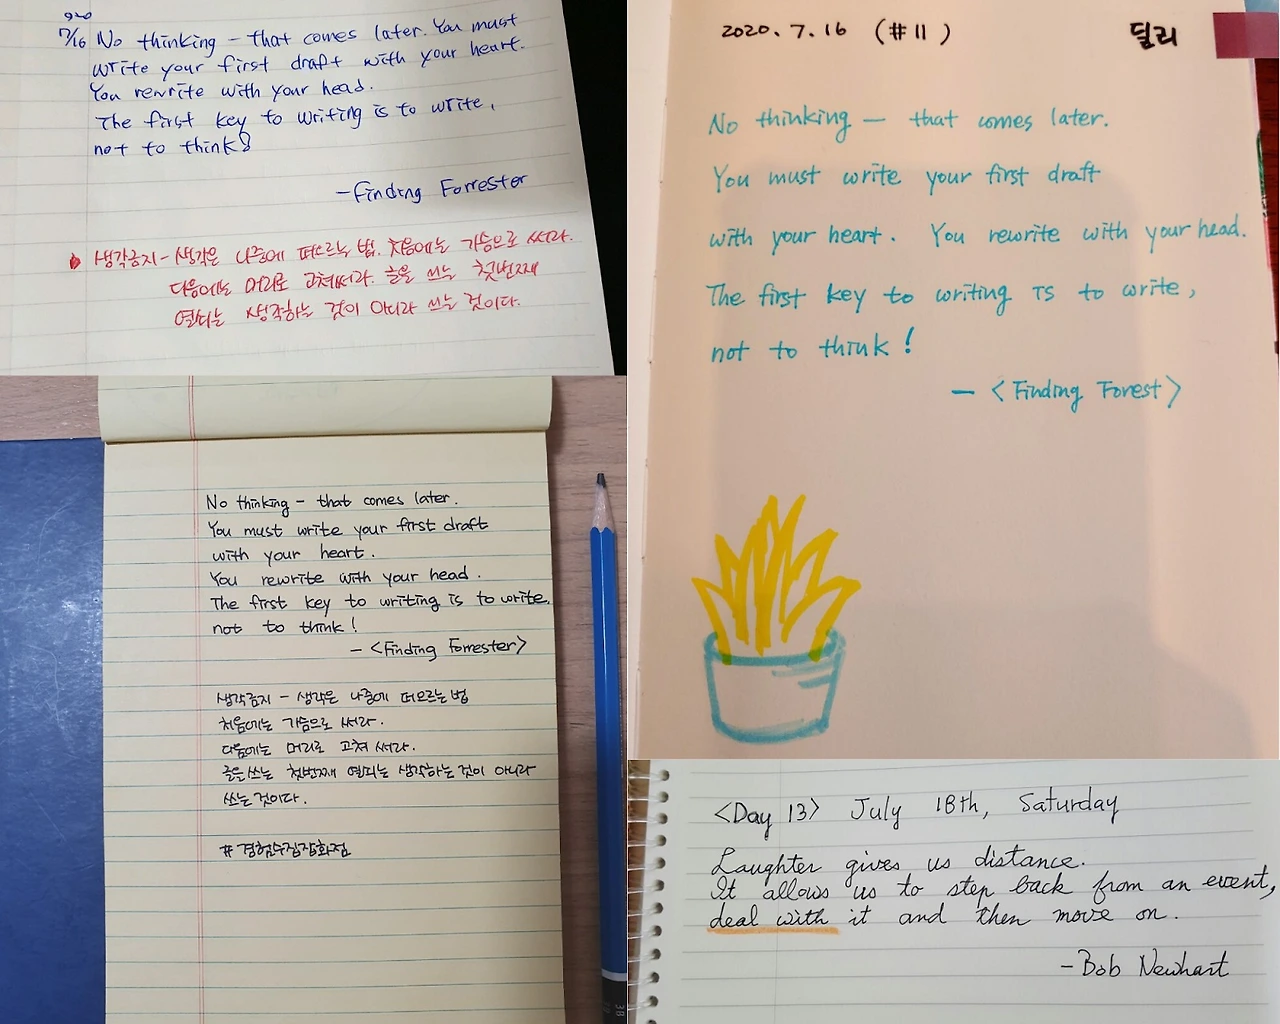 7/16 No thinking – that comes later. You must
write your first draft with your heart.
You rewrite with your head.
The first key to writing is to write,
not to think!
– Finding Forrester
생각금지 – 생각은 나중에 떠오르는 법. 처음에는 가슴으로 써라.
다음에는 머리로 고쳐써라. 글을 쓰는 첫번째
열쇠는 생각하는 것이 아니라 쓰는 것이다.
2020. 7. 16 (#11) 딜리
No thinking – that comes later.
You must write your first draft
with your heart. You rewrite with your head.
The first key to writing is to write,
not to think!
– <Finding Forest>
No thinking – that comes later.
You must write your first draft
with your heart.
You rewrite with your head.
The first key to writing is to write.
not to think!
– <Finding Forrester>
생각금지 – 생각은 나중에 떠오르는 법
처음에는 가슴으로 써라.
다음에는 머리로 고쳐 써라.
글을 쓰는 첫번째 열쇠는 생각하는 것이 아니라
쓰는 것이다.
#경험수집잡화점
3B
<Day 13> July 18th, Saturday
Laughter gives us distance.
It allows us to step back from an event,
deal with it and then move on.
– Bob Newhart